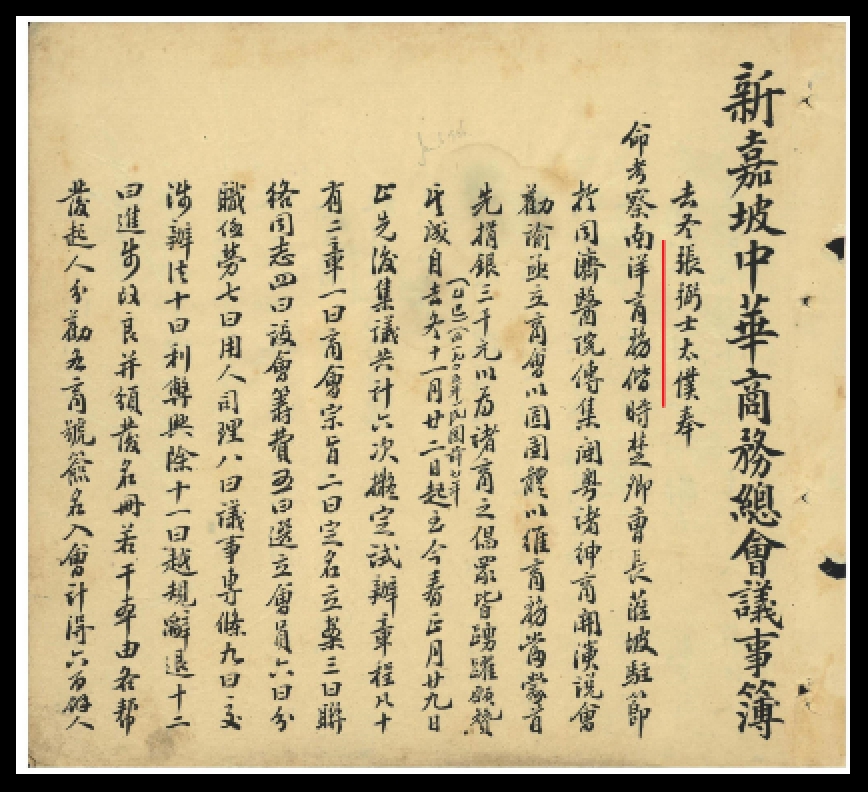 新嘉坡中華商務總會議事簿
去冬張弼士太僕奉
命考察南洋商務偕時楚卿會長蒞坡駐節
於同濟醫院傳集閩粵諸紳商開演說會
勸諭亟立商會以固團體以維商務當蒙首
先捐銀三千元以為諸商之倡眾皆踴躍願贊
其成自去冬十一月廿二日起至今春正月廿九日
(乙巳(公一九〇五年民國前七年
止先後集議共計六次擬定試辦章程八十
有二章一曰商會宗旨二曰定名立案三曰聯
絡同志四曰設會籌費五曰選立會員六曰分
職任勞七曰用人司理八曰議事專條九曰交
涉辦法十曰利弊興除十一曰越規辭退十二
曰進步改良并領發名冊若干本由各幫
發起人分勸各商號簽名入會計得六百餘人